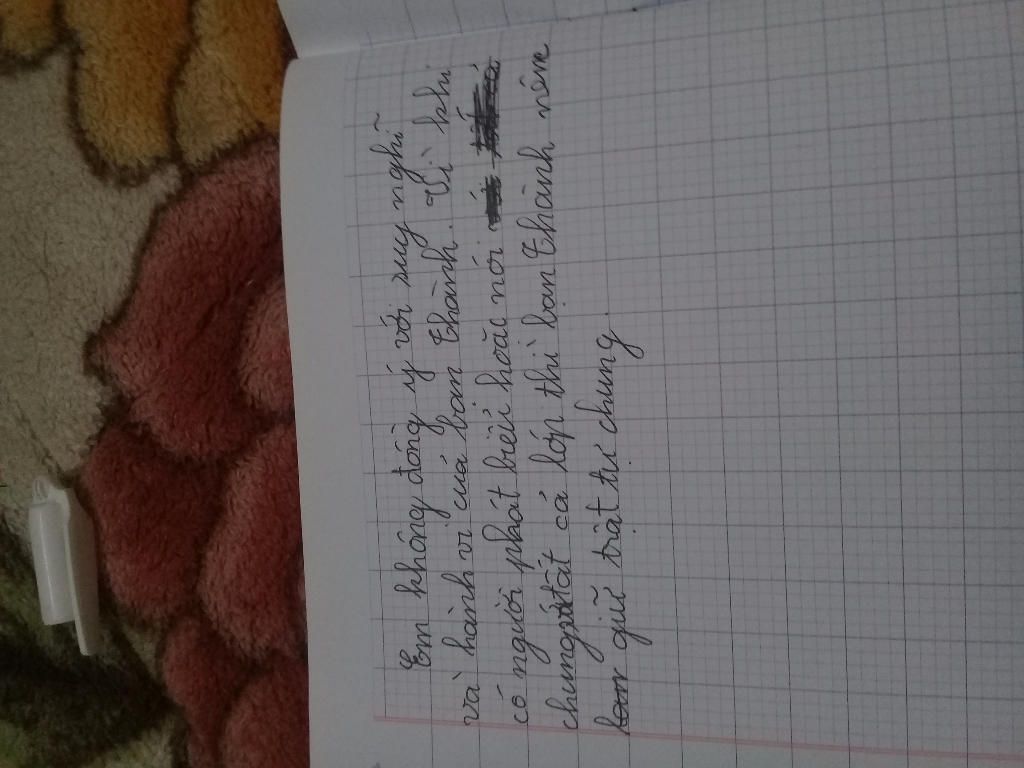 Em không đồng ý với suy nghĩ
và hành vi của bạn Thành. Vì khi
có người phát biểu hoặc nói
chung tất cả lớp thì bạn Thành nên
giữ trật tự chung.